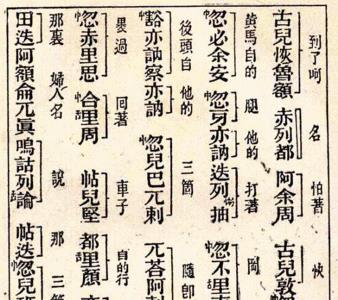 到了呵 名 怕著
古兒恢魯額 赤列都 阿余周 古兒敦
黃馬自的 腿 他的 打著 岡
中忽必余安 中忽牙亦訥 迭列惕抽 中忽不里
後頭自 他的 三箇 隨卽
中豁亦訥察亦訥 中忽兒巴兀剌 兀荅阿剌
過 回著 車子 自的行
中忽赤里思 中合舌里周 帖兒堅 都里顏
那裏 婦人名 說 那 三箇
田迭阿額侖兀眞嗚詁列論 帖迭中忽兒